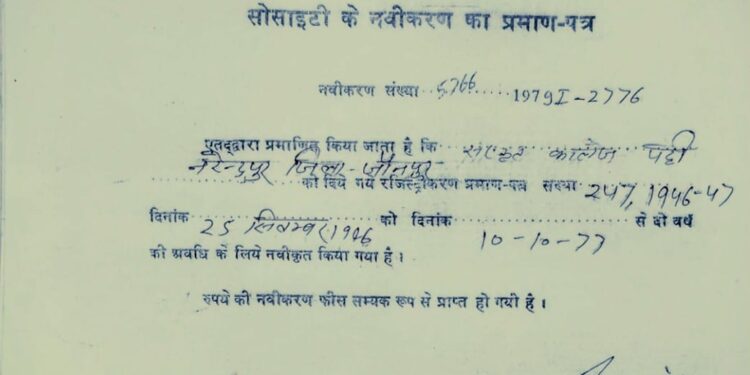 सोसाइटी के नवीकरण का प्रमाण-पत्र
नवीकरण संख्या 5766 1979I-2776
एतद्द्वारा प्रमाणित किया जाता है कि संस्कृत कालेज पट्टी
नरेन्द्रपुर जिला-जौनपुर
को दिये गये रजिस्ट्रीकरण प्रमाण-पत्र संख्या 247, 1946-47
दिनांक 25 सितम्बर, 1946 को दिनांक 10-10-77 से दो वर्ष
की अवधि के लिये नवीकृत किया गया है।
रुपये की नवीकरण फीस सम्यक रूप से प्राप्त हो गयी है।